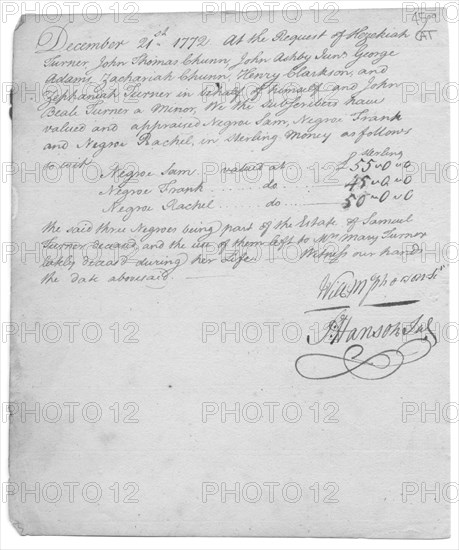 December 21st 1772 At the Request of Hezekiah
Turner, John Thomas Chunn, John Ashby Junr. George
Adams, Zachariah Chunn, Henry Clarkson, and
Zephaniah Turner in behalf of himself and John
Beale Turner a Minor, We the Subscribers have
valued and appraised Negroe Sam, Negroe Frank
and Negroe Rachel, in Sterling Money as follows
to wit
Sterling
Negroe Sam valued at £55"0"0
Negroe Frank do 45"0"0
Negroe Rachel do 50"0"0
the said three Negroes being part of the Estate of Samuel
Turner deceasd, and the use of them left to Mrs. Mary Turner
lately deceasd during her Life. Witness our hands
the date abovesaid
Hanson